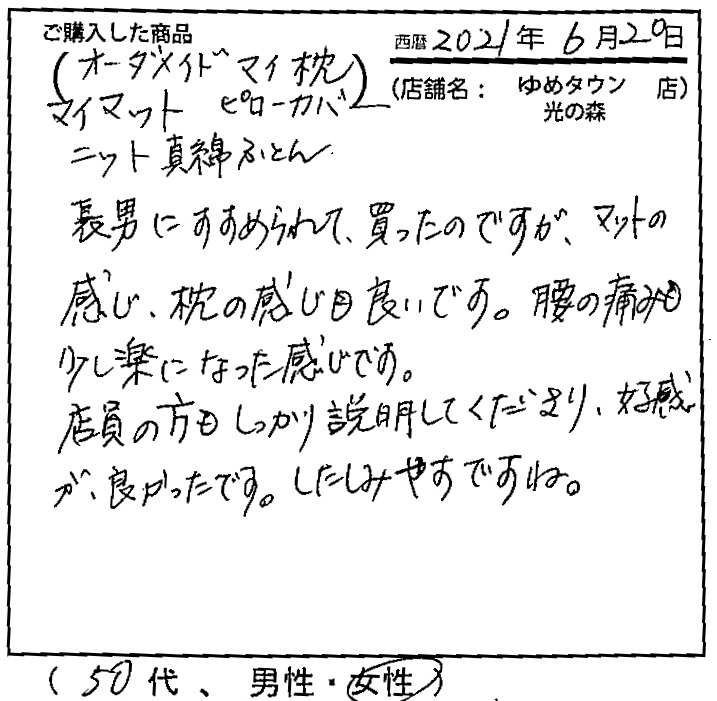 ご購入した商品
西暦 2021年 6月20日
(オーダメイド マイ枕)
(店舗名： ゆめタウン 光の森 店)
マイマット ピローカバー
ニット真綿ふとん
長男にすすめられて、買ったのですが、マットの
感じ、枕の感じも良いです。腰の痛みも
少し楽になった感じです。
店員の方もしっかり説明してくださり、好感
が、良かったです。したしみやすですね。
(50代、男性・女性)